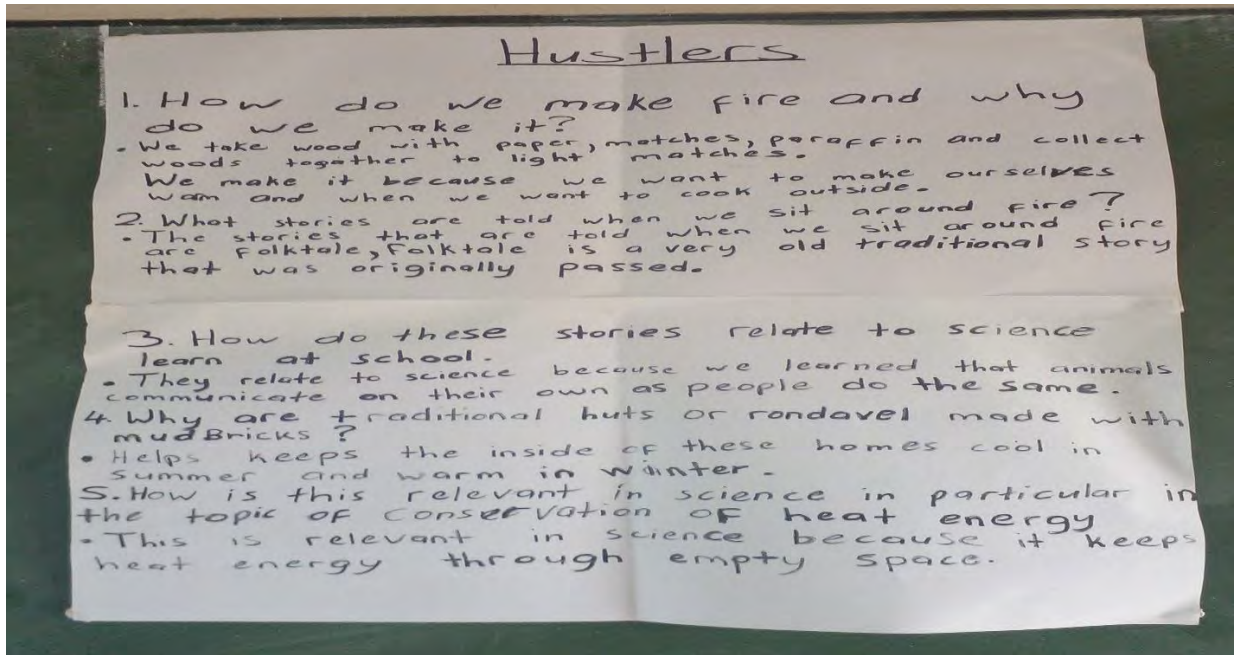 Hustlers
1. How do we make fire and why
do we make it?
• We take wood with paper, matches, paraffin and collect
woods together to light matches.
We make it because we want to make ourselves
wam and when we want to cook outside.
2. What stories are told when we sit around fire?
• The stories that are told when we sit around fire
are folktale, folktale is a very old traditional story
that was originally passed.
3. How do these stories relate to science
learn at school.
• They relate to science because we learned that animals
communicate on their own as people do the same.
4. Why are traditional huts or rondavel made with
mudBricks?
• Helps keeps the inside of these homes cool in
summer and warm in winter.
5. How is this relevant in science in particular in
the topic of conservation of heat energy
• This is relevant in science because it keeps
heat energy through empty space.